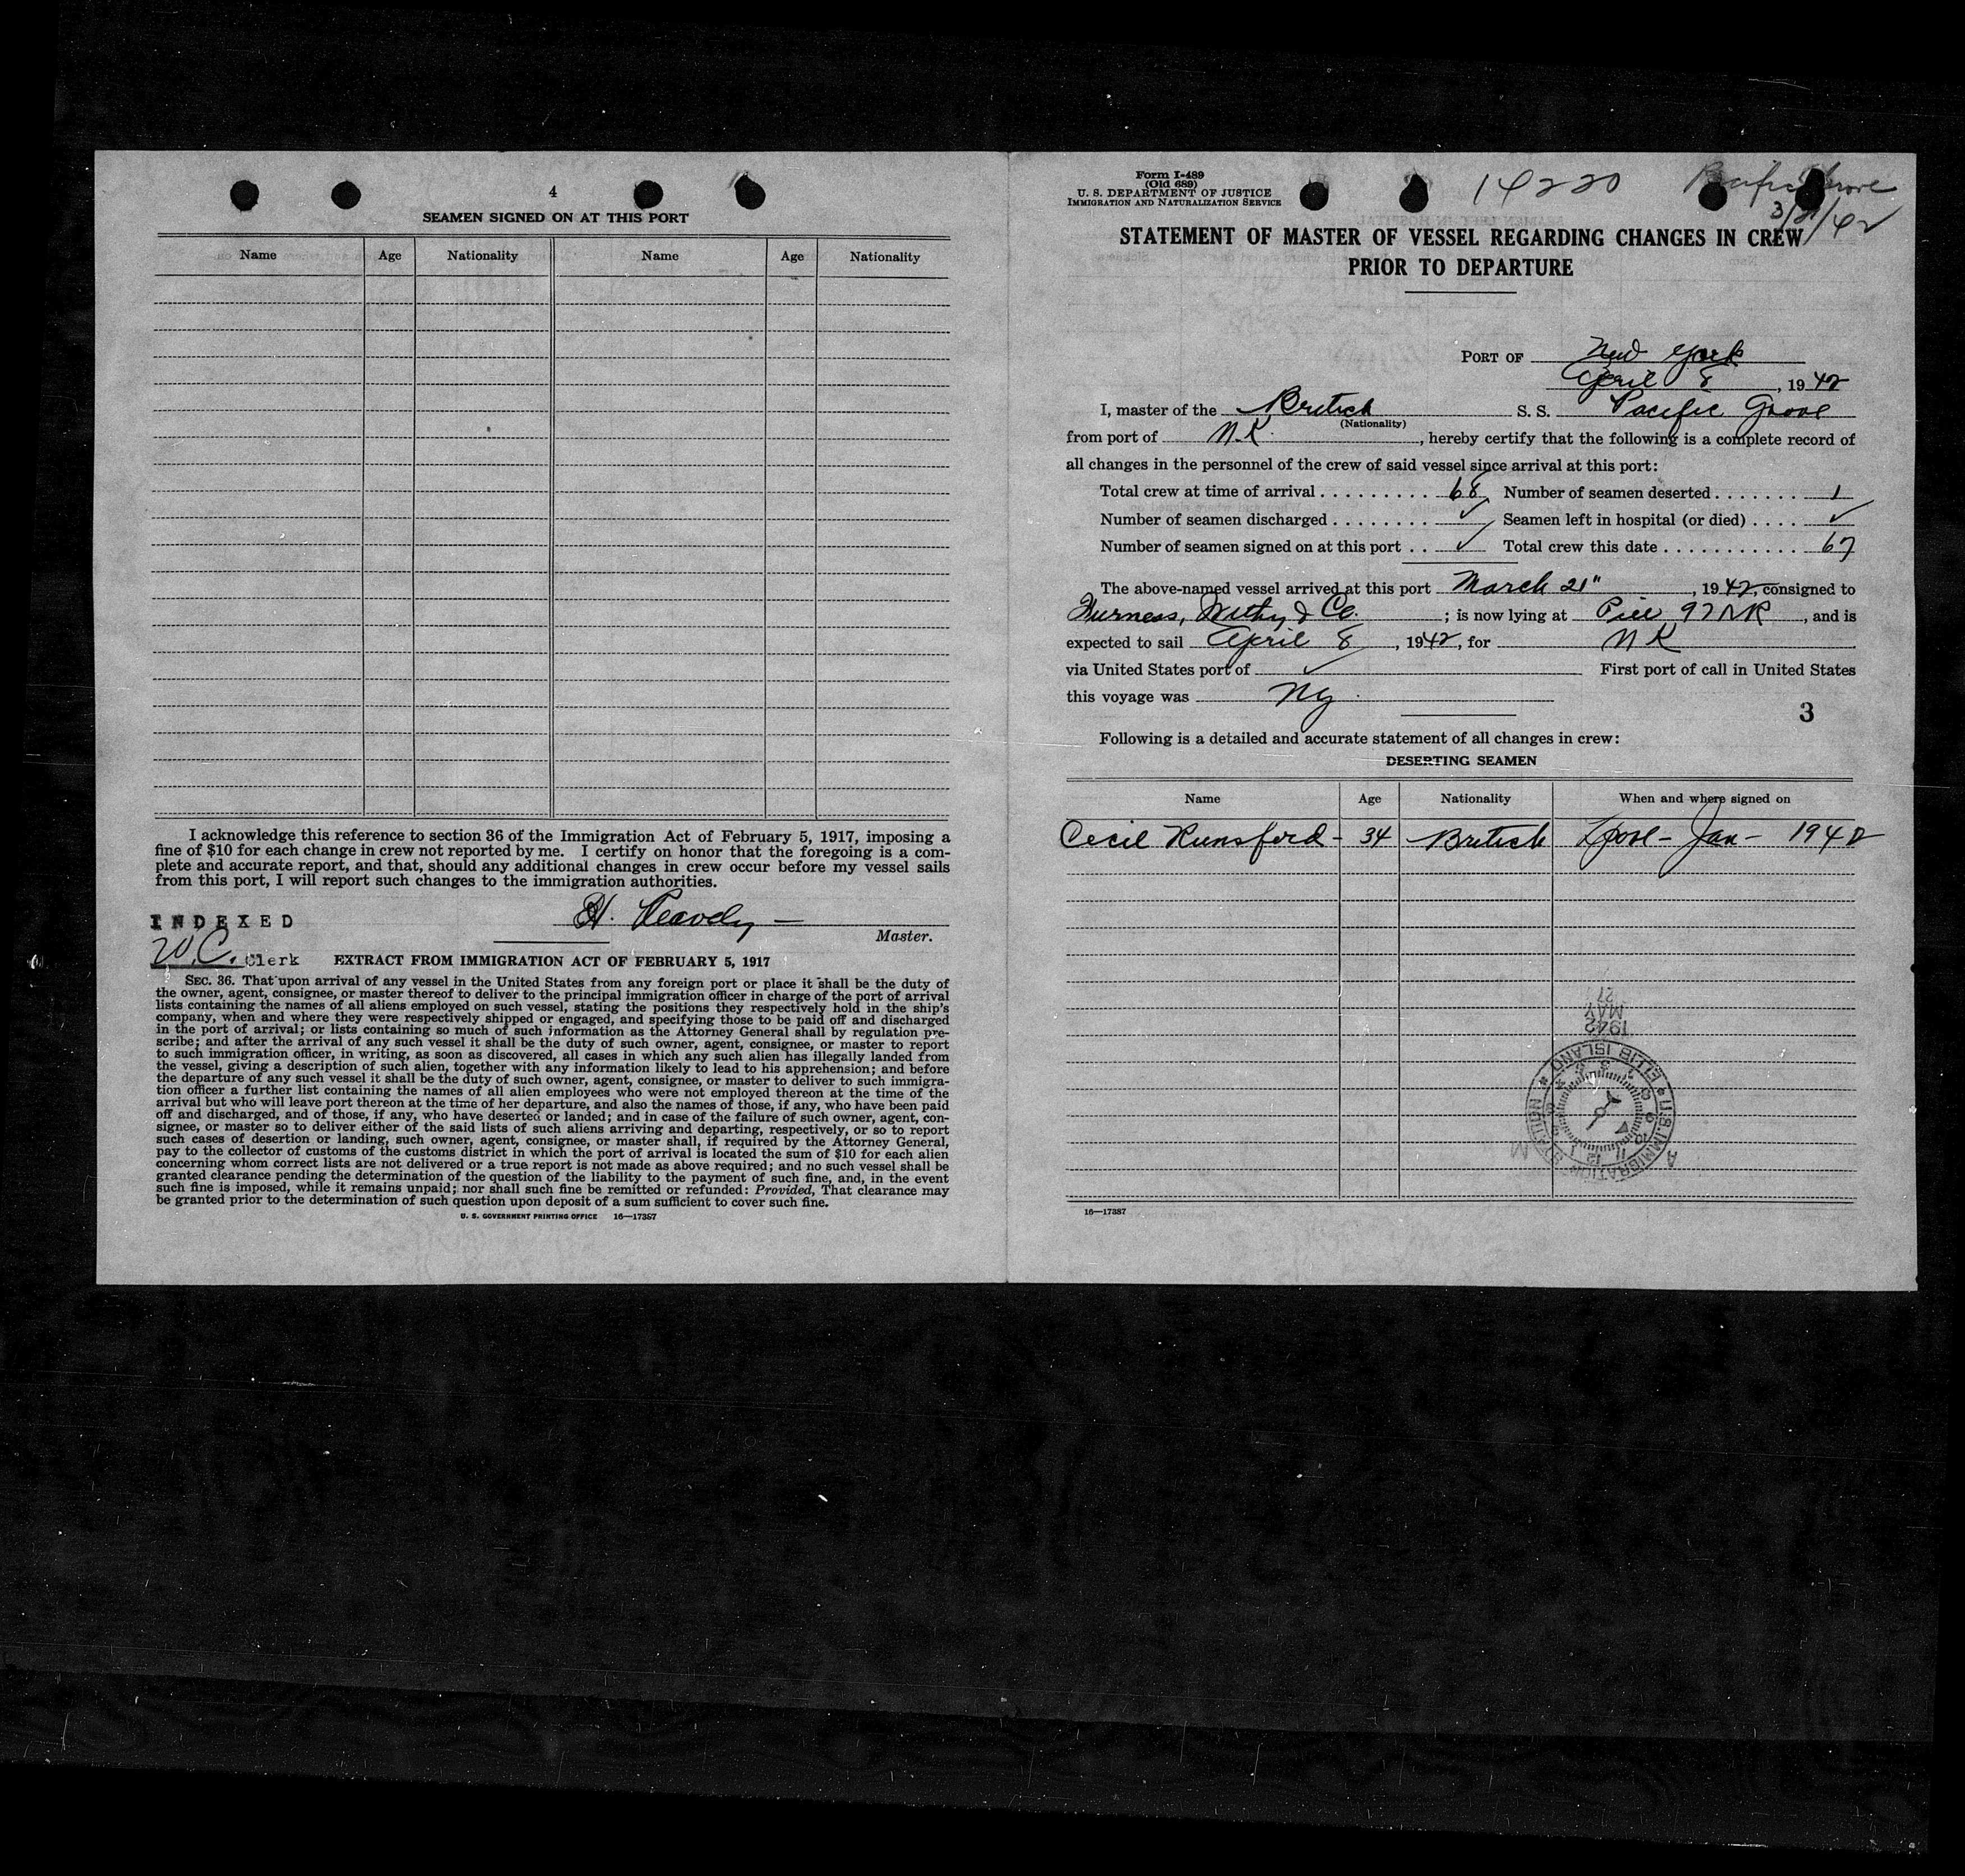 4
SEAMEN SIGNED ON AT THIS PORT
Name Age Nationality Name Age Nationality
I acknowledge this reference to section 36 of the Immigration Act of February 5, 1917, imposing a
fine of $10 for each change in crew not reported by me. I certify on honor that the foregoing is a com-
plete and accurate report, and that, should any additional changes in crew occur before my vessel sails
from this port, I will report such changes to the immigration authorities.
INDEXED
Master.
W.C. Clerk
EXTRACT FROM IMMIGRATION ACT OF FEBRUARY 5, 1917
SEC. 36. That upon arrival of any vessel in the United States from any foreign port or place it shall be the duty of
the owner, agent, consignee, or master thereof to deliver to the principal immigration officer in charge of the port of arrival
lists containing the names of all aliens employed on such vessel, stating the positions they respectively hold in the ship's
company, when and where they were respectively shipped or engaged, and specifying those to be paid off and discharged
in the port of arrival; or lists containing so much of such information as the Attorney General shall by regulation pre-
scribe; and after the arrival of any such vessel it shall be the duty of such owner, agent, consignee, or master to report
to such immigration officer, in writing, as soon as discovered, all cases in which any such alien has illegally landed from
the vessel, giving a description of such alien, together with any information likely to lead to his apprehension; and before
the departure of any such vessel it shall be the duty of such owner, agent, consignee, or master to deliver to such immigra-
tion officer a further list containing the names of all alien employees who were not employed thereon at the time of the
arrival but who will leave port thereon at the time of her departure, and also the names of those, if any, who have been paid
off and discharged, and of those, if any, who have deserted or landed; and in case of the failure of such owner, agent, con-
signee, or master so to deliver either of the said lists of such aliens arriving and departing, respectively, or so to report
such cases of desertion or landing, such owner, agent, consignee, or master shall, if required by the Attorney General,
pay to the collector of customs of the customs district in which the port of arrival is located the sum of $10 for each alien
concerning whom correct lists are not delivered or a true report is not made as above required; and no such vessel shall be
granted clearance pending the determination of the question of the liability to the payment of such fine, and, in the event
such fine is imposed, while it remains unpaid; nor shall such fine be remitted or refunded: Provided, That clearance may
be granted prior to the determination of such question upon deposit of a sum sufficient to cover such fine.
U. S. GOVERNMENT PRINTING OFFICE 16—17387
Form I-489
(Old 689)
U. S. DEPARTMENT OF JUSTICE
IMMIGRATION AND NATURALIZATION SERVICE
14220
Pacific Grove
3/21/42
STATEMENT OF MASTER OF VESSEL REGARDING CHANGES IN CREW
PRIOR TO DEPARTURE
PORT OF New York
April 8, 1942
I, master of the British S. S. Pacific Grove
(Nationality)
from port of N.K., hereby certify that the following is a complete record of
all changes in the personnel of the crew of said vessel since arrival at this port:
Total crew at time of arrival . . . . . . . . . 68 Number of seamen deserted . . . . . . . 1
Number of seamen discharged . . . . . . . . ✓ Seamen left in hospital (or died) . . . . ✓
Number of seamen signed on at this port . . ✓ Total crew this date . . . . . . . . . . . . 67
The above-named vessel arrived at this port March 21", 1942, consigned to
Furness, Withy & Co. ; is now lying at Pier 97 NR, and is
expected to sail April 8, 1942, for N K
via United States port of ✓ First port of call in United States
this voyage was NY.
3
Following is a detailed and accurate statement of all changes in crew:
DESERTING SEAMEN
Name Age Nationality When and where signed on
Cecil Runsford - 34 British Lpool - Jan - 1942
1942
MAY
27
U.S. IMMIGRATION STATION
ELLIS ISLAND
16—17387